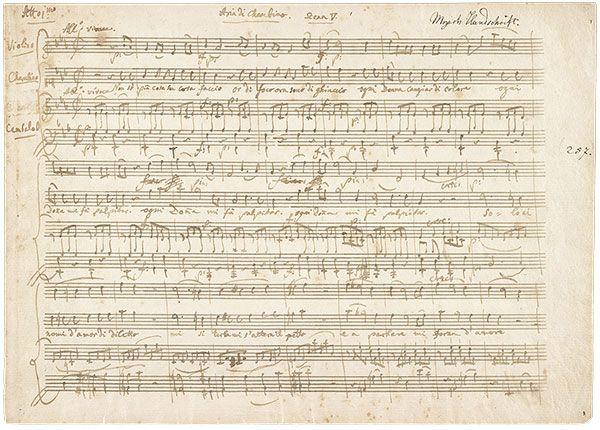 Atto 1mo Aria di Cherubino. Scena V. Mozarts Handschrift.
All:o vivace.
Violino
Cherubino
All:o vivace Non sò più cosa son cosa faccio or di foco ora sono di ghiaccio ogni Donna cangiar di colore ogni
Cembalo
257.
cresc:
Dona mi fà palpitar. ogni Dona mi fà palpitar, ogni dona mi fà palpitar. so-lo ai
nomi d'amor di diletto mi si turba mi s'altera il petto e a parlare mi sforza d'amore